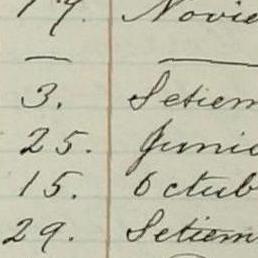 19. Novie
— —
3. Setiem
25. Junio
15. Octub
29. Setiem